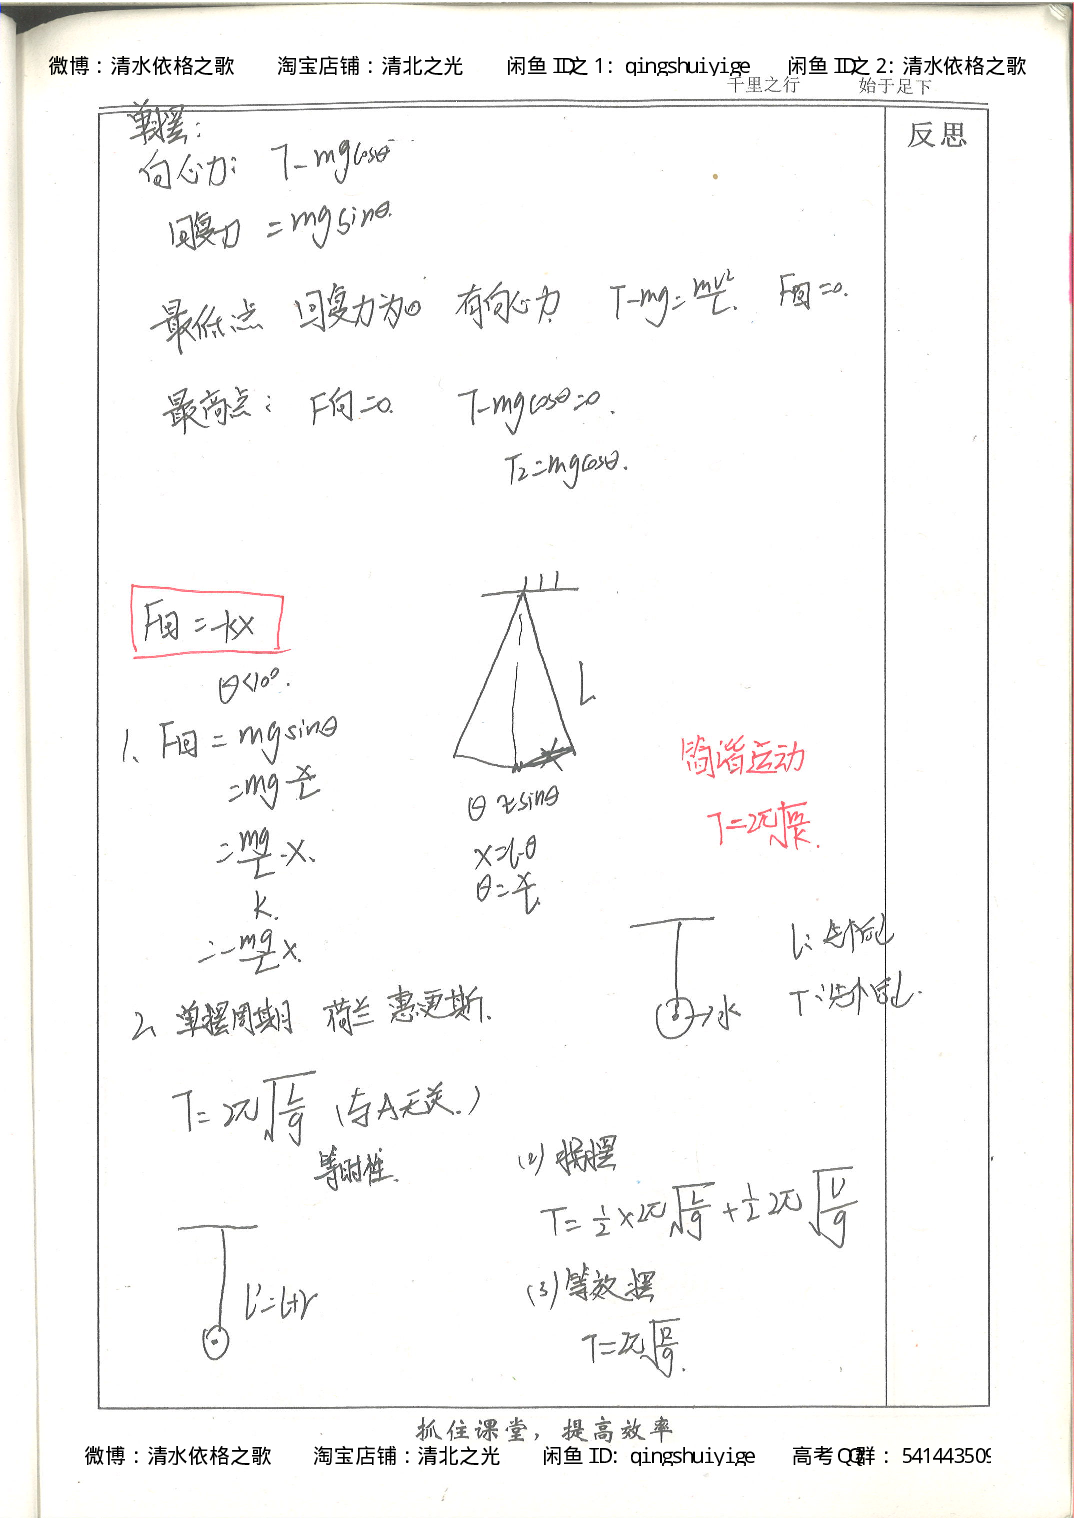 微博：清水依格之歌 淘宝店铺：清北之光 闲鱼 ID之 1: qingshuiyige 闲鱼 ID之 2: 清水依格之歌
千里之行 始于足下
反思
单摆：
向心力： T-mgcosθ
回复力 =mgsinθ.
最低点 回复力为0 有向心力 T-mg=mv²/L. F回=0.
最高点： F向=0. T-mgcosθ=0.
T₂=mgcosθ.
F回=-kx
θ<10°.
L
1、F回=mgsinθ
=mg x/L
=mg/L·x.
k.
=-mg/L x.
x
θ≈sinθ
x=L·θ
θ=x/L.
简谐运动
T=2π√(m/k).
2、单摆周期 荷兰 惠更斯.
T=2π√(L/g) (与A无关.)
等时性.
→水
L: 先个后
T: 先个后
L'=L+r
(2) 摆
T=1/2×2π√(L/g)+1/2 2π√(L'/g)
(3) 等效摆
抓住课堂，提高效率
微博：清水依格之歌 淘宝店铺：清北之光 闲鱼 ID: qingshuiyige 高考 QQ群： 541443509